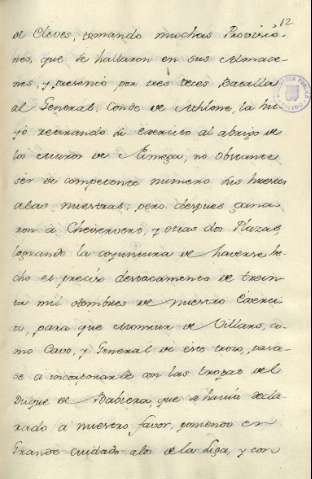 12
de Cleves, tomando muchas Provisio-
nes, que se hallaron en sus Almaze-
nes, y presentó por tres veces Batallas
al General, Conde de Athlone, la hu-
yó retirando su exercito al abrigo de
los muros de Nimega, no obstante
ser de competente numero sus huestes
a las nuestras; pero despues gana-
ron à y otras dos Plazas,
logrando la coyuntura de haverse he-
cho el preciso destacamento de trein-
ta mil Hombres de nuestro Exerci-
to, para que Monsiur de Villars, co-
mo Cavo, y General de este trozo, pasa-
se a incorporarse con las tropas del
Duque de Babiera, que se havia decla-
rado a nuestro favor, poniendo en
grande cuidado a los de la Liga, y con